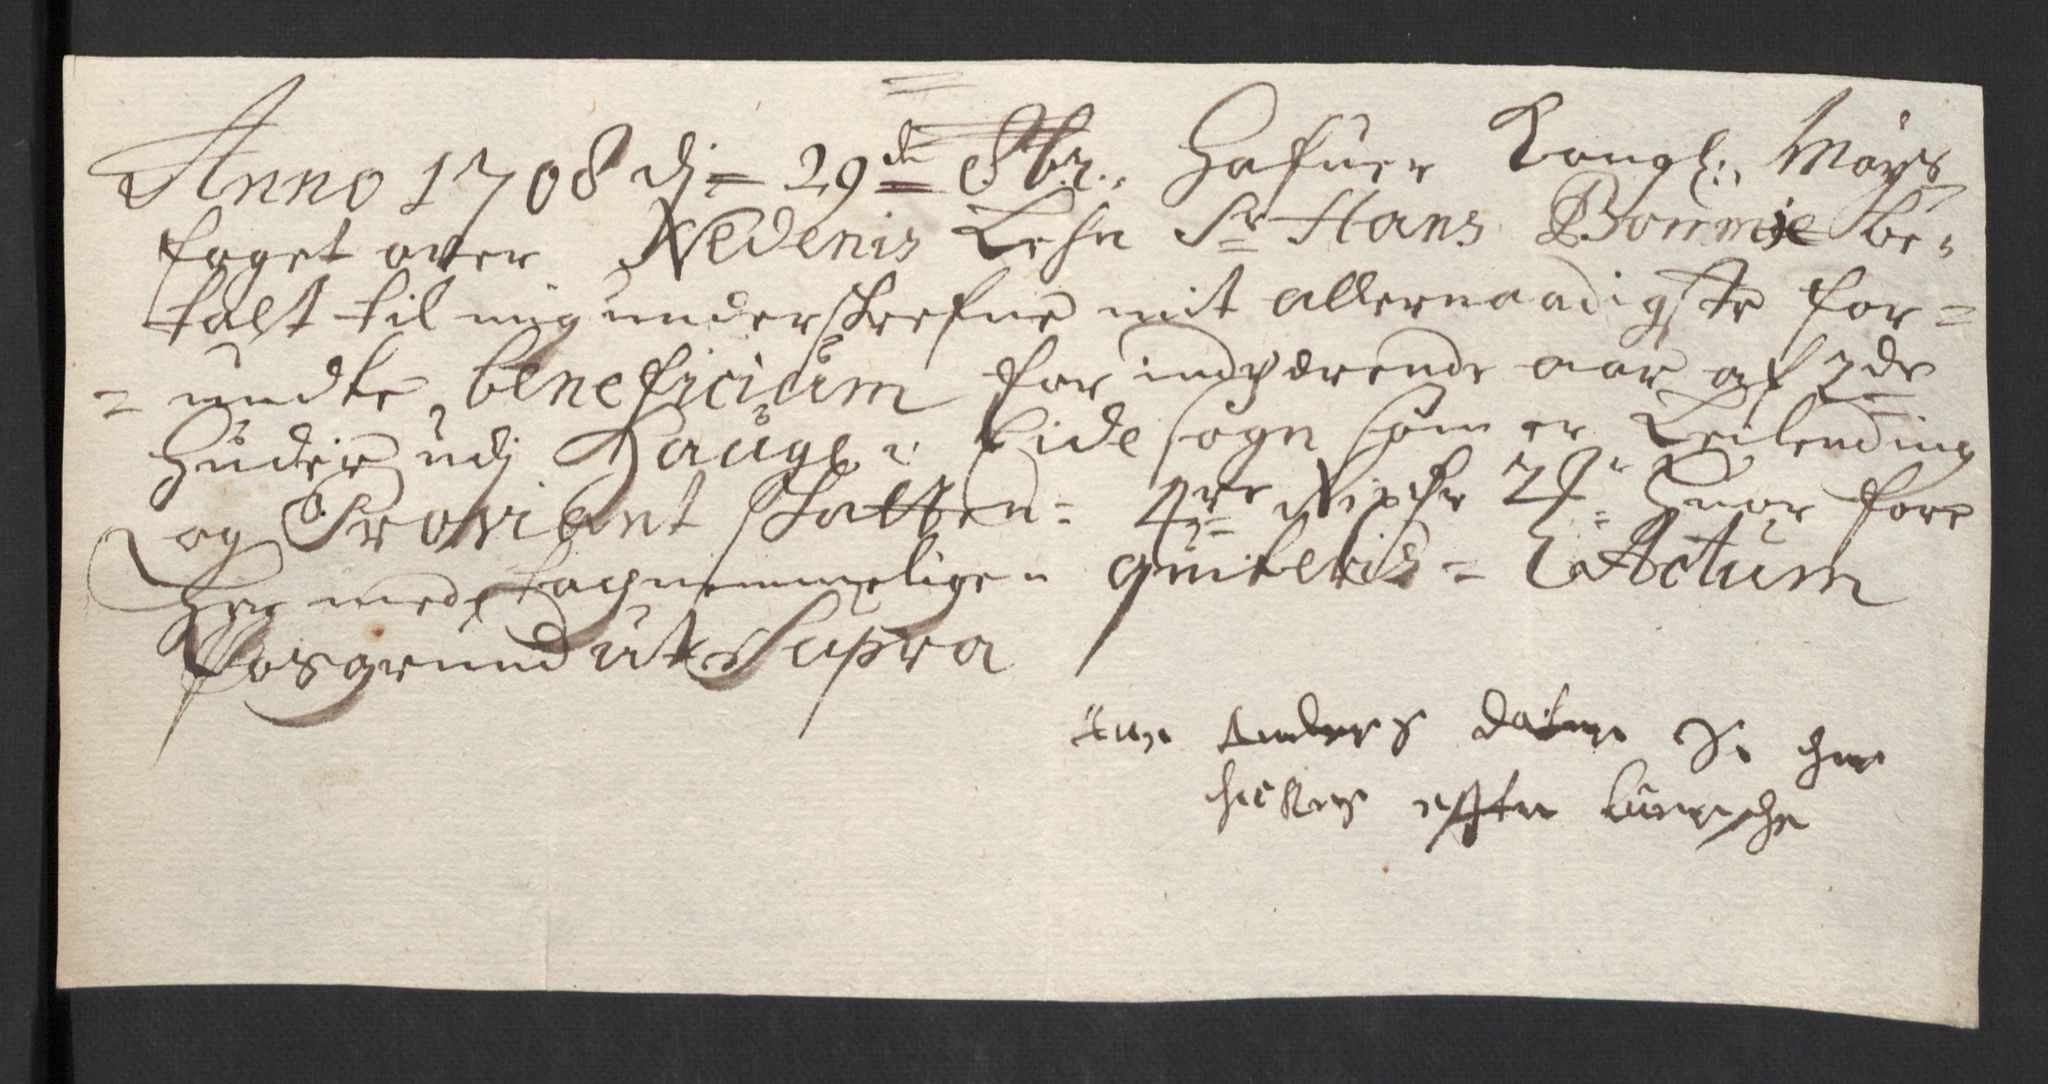 Anno 1708 dj = 29de 8br. Hafuer Kongl: Mayst
foget over Nedenis Lehn Sr Hans Bomme be-
talt til mig underskrefne mit allernaadigste for=
= undte beneficium for indværende aar af 2de
huder udj Hauge i Eide sogn som er Leilending
og Proviant skatten = 4re Rixdr 2 hvor fore
her med tachnemmeligen quiteris = Actum
Porsgrund ut Supra
Anders
effter